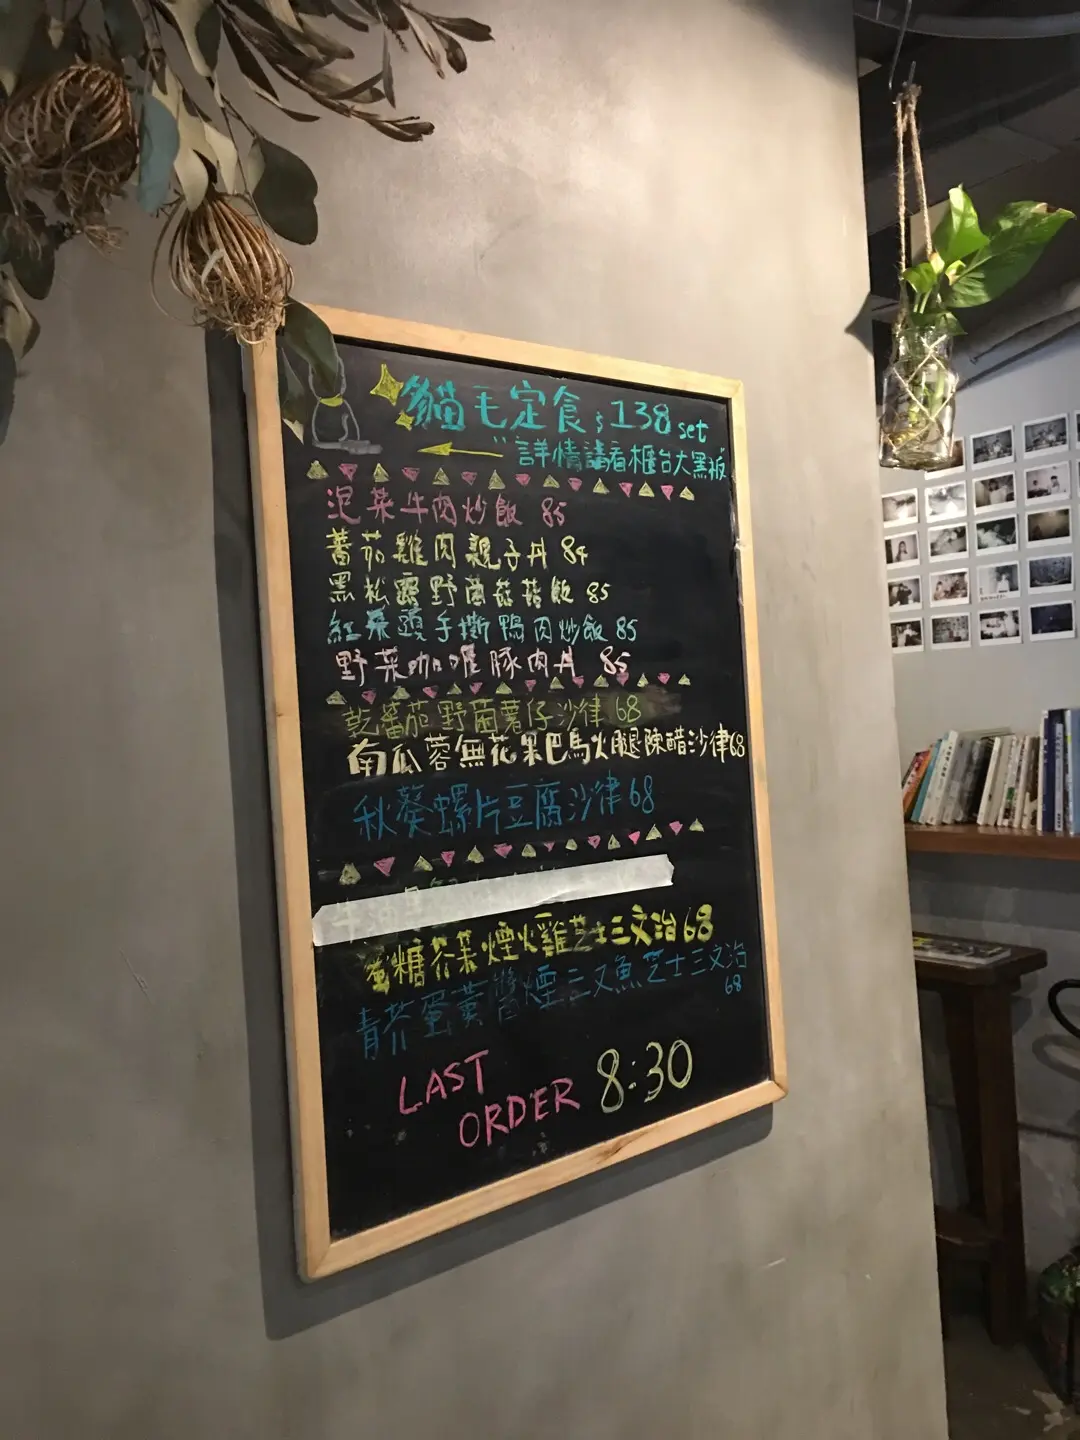 貓毛定食 $138 set
詳情請看櫃台大黑板
泡菜牛肉炒飯 85
蕃茄雞肉親子丹 84
黑松露野菌菇菇飯 85
紅菜頭手撕鴨肉炒飯 85
野菜咖喱豚肉丹 85
乾蕃茄野菌薯仔沙律 68
南瓜蓉無花果巴馬火腿陳醋沙律68
秋葵螺片豆腐沙律 68
蜜糖芥茉煙火雞芝士三文治 68
青芥蛋黃醬煙三文魚芝士三文治
68
LAST
ORDER 8:30